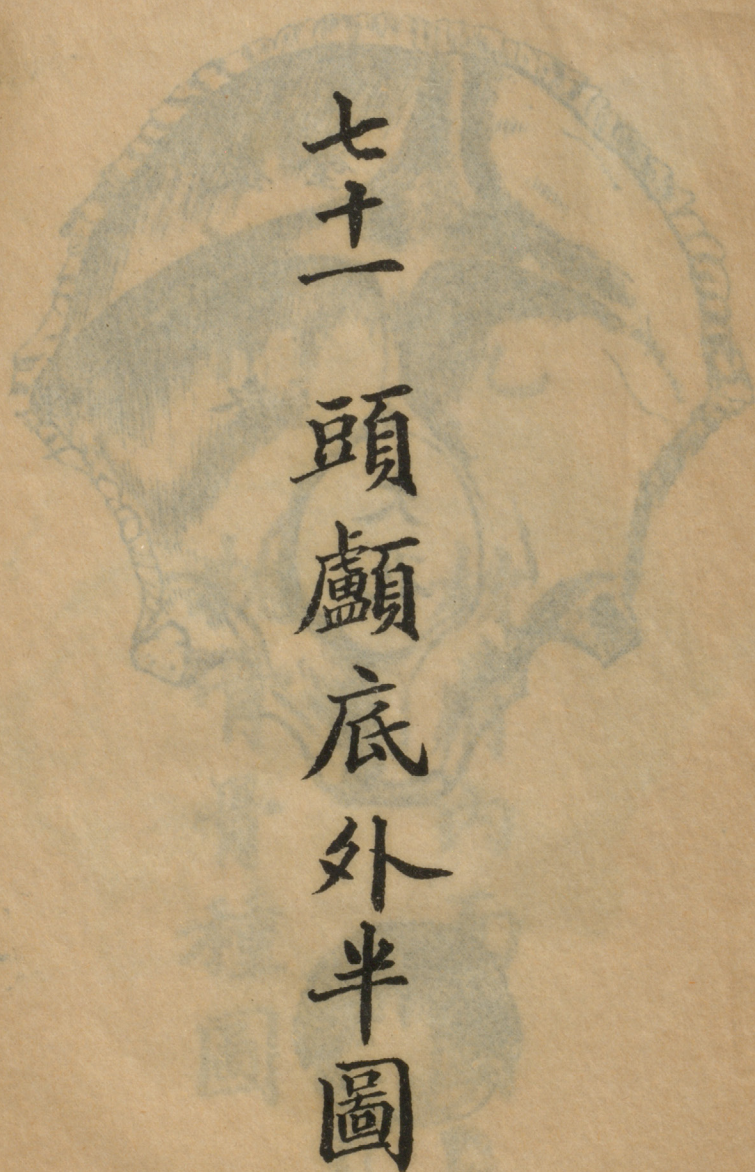 七十一 頭顱底外半圖